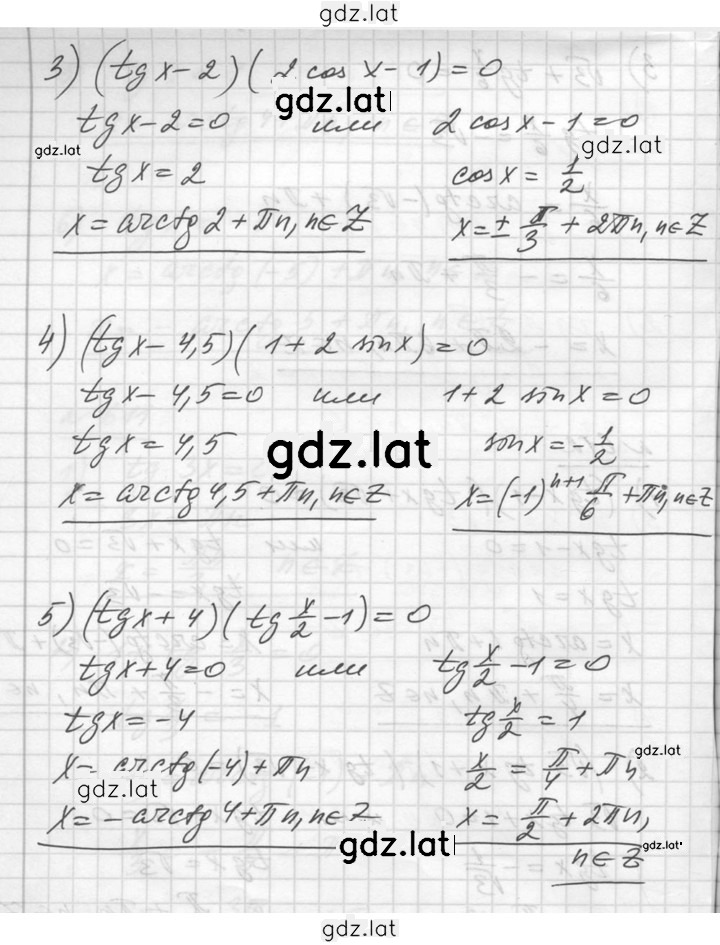 gdz.lat
3) (tg x - 2)(2 cos x - 1) = 0
gdz.lat
tg x - 2 = 0 или 2 cos x - 1 = 0
gdz.lat gdz.lat
tg x = 2 cos x = 1/2
x = arctg 2 + πn, n∈Z x = ± π/3 + 2πn, n∈Z
4) (tg x - 4,5)(1 + 2 sin x) = 0
tg x - 4,5 = 0 или 1 + 2 sin x = 0
tg x = 4,5 gdz.lat sin x = - 1/2
x = arctg 4,5 + πn, n∈Z x = (-1)^(n+1) π/6 + πn, n∈Z
5) (tg x + 4)(tg x/2 - 1) = 0
tg x + 4 = 0 или tg x/2 - 1 = 0
tg x = -4 tg x/2 = 1
gdz.lat
x = arctg(-4) + πn x/2 = π/4 + πn
gdz.lat
x = -arctg 4 + πn, n∈Z x = π/2 + 2πn,
gdz.lat n∈Z gdz.lat
gdz.lat